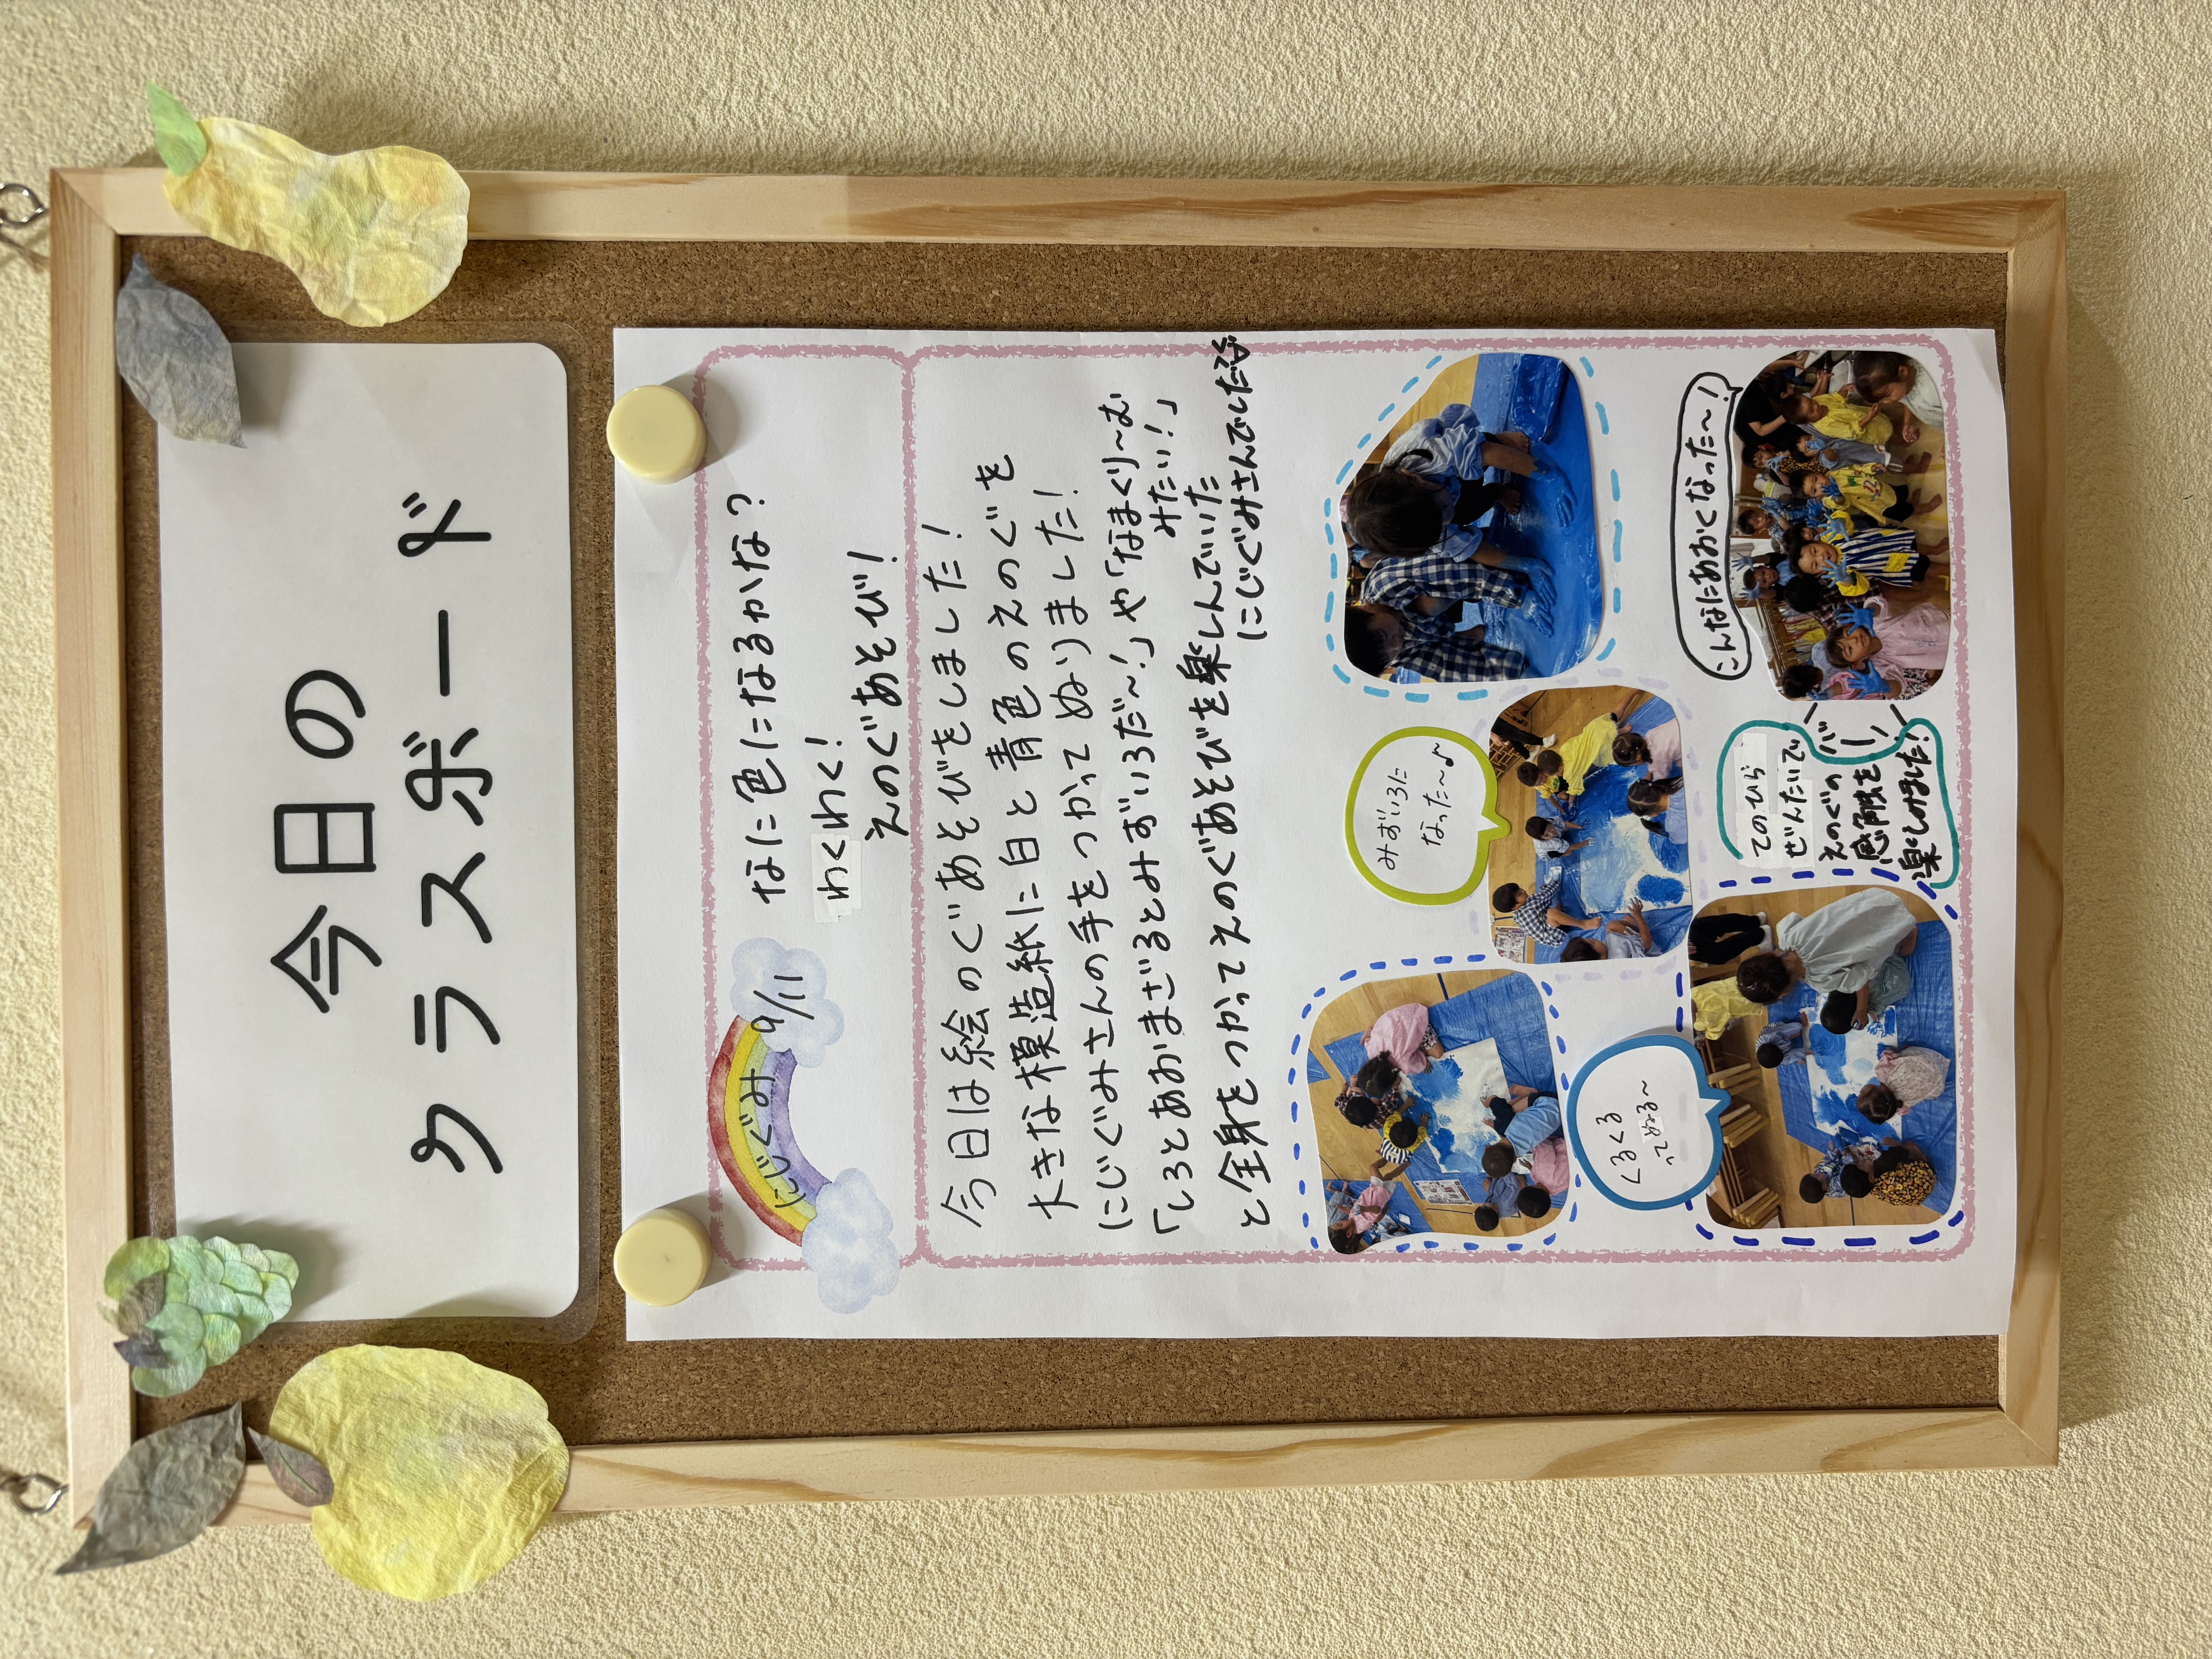 今日の
クラスボード
にじぐみ 9/11
なに色になるかな？
わくわく！
えのぐあそび！
今日は絵のぐあそびをしました！
大きな模造紙に白と青色のえのぐを
にじぐみさんの手をつかってぬりました！
「しろとあおまざるとみずいろだ〜！」や「なまくりーむ
みたい！」
と全身をつかってえのぐあそびを楽しんでいた
にじぐみさんでした
みずいろに
なった〜♪
くるくる
ってぬる〜
こんなにあおくなった〜！
てのひら
ぜんたいで
えのぐの
感触を
楽しみました！